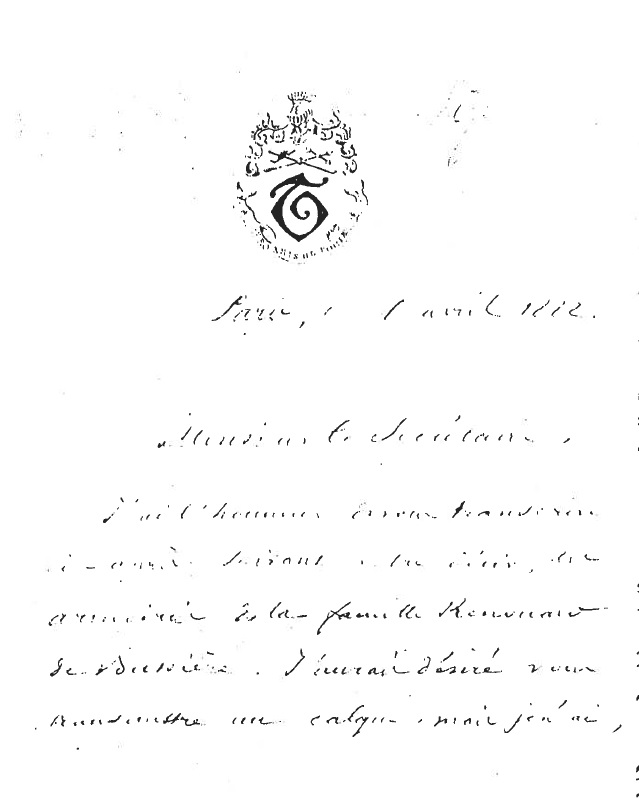 Paris, avril 1882.
Monsieur le Secrétaire,
J'ai l'honneur de vous transcrire
ci-après, suivant votre désir, les
armoiries de la famille Renouard
de Bussière. J'aurais désiré vous
transmettre un calque, mais je n'ai,